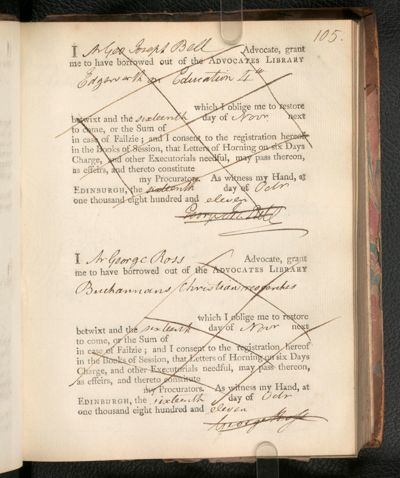 105.
I Mr Geo Joseph Bell Advocate, grant
me to have borrowed out of the ADVOCATES LIBRARY
Edgeworth on Education 4to
which I oblige me to restore
betwixt and the sixteenth day of Novr next
to come, or the Sum of
in case of Failzie; and I consent to the registration hereof
in the Books of Session, that Letters of Horning on six Days
Charge, and other Executorials needful, may pass thereon,
as effeirs, and thereto constitute
my Procurators. As witness my Hand, at
EDINBURGH, the sixteenth day of Octr
one thousand eight hundred and eleven
I Mr George Ross Advocate, grant
me to have borrowed out of the ADVOCATES LIBRARY
Buchannans Christian
which I oblige me to restore
betwixt and the sixteenth day of Novr next
to come, or the Sum of
in case of Failzie; and I consent to the registration hereof
in the Books of Session, that Letters of Horning on six Days
Charge, and other Executorials needful, may pass thereon,
as effeirs, and thereto constitute
my Procurators. As witness my Hand, at
EDINBURGH, the sixteenth day of Octr
one thousand eight hundred and eleven
George Ross